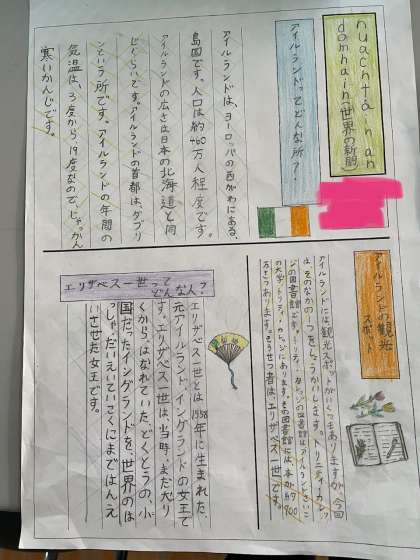 nuachtáin an
domhain(世界の新聞)
アイルランドってどんな所?
アイルランドは、ヨーロッパの西がわにある、
島国です。人口は約460万人程度です。
アイルランドの広さは日本の北海道と同
じぐらいです。アイルランドの首都は、ダブリ
ンという所です。アイルランドの年間の
気温は、3度から19度なので、じゃっかん
寒いかんじです。
アイルランドの観光
スポット
アイルランドには観光スポットがいくつもありますが、今回
は、そのなかの一つをしょうかいします。トリニティ・カレッ
ジの図書館です。トリニティ・カレッジの図書館はアイルランドさいこ
の大学、トリニティ・カレッジにあります。その図書館には本が約400
万さつあります。そうせつ者は、エリザベス一世です。
エリザベス一世ってどんな人?
エリザベス一世とは1558年に生まれた、
元アイルランド、イングランドの女王で
す。エリザベス一世は当時、まだ大り
くから、はなれていた、どくとうの、小
国だったイングランドを、世界のは
っしゃだいえいていこくにまではんえ
いさせた女王です。